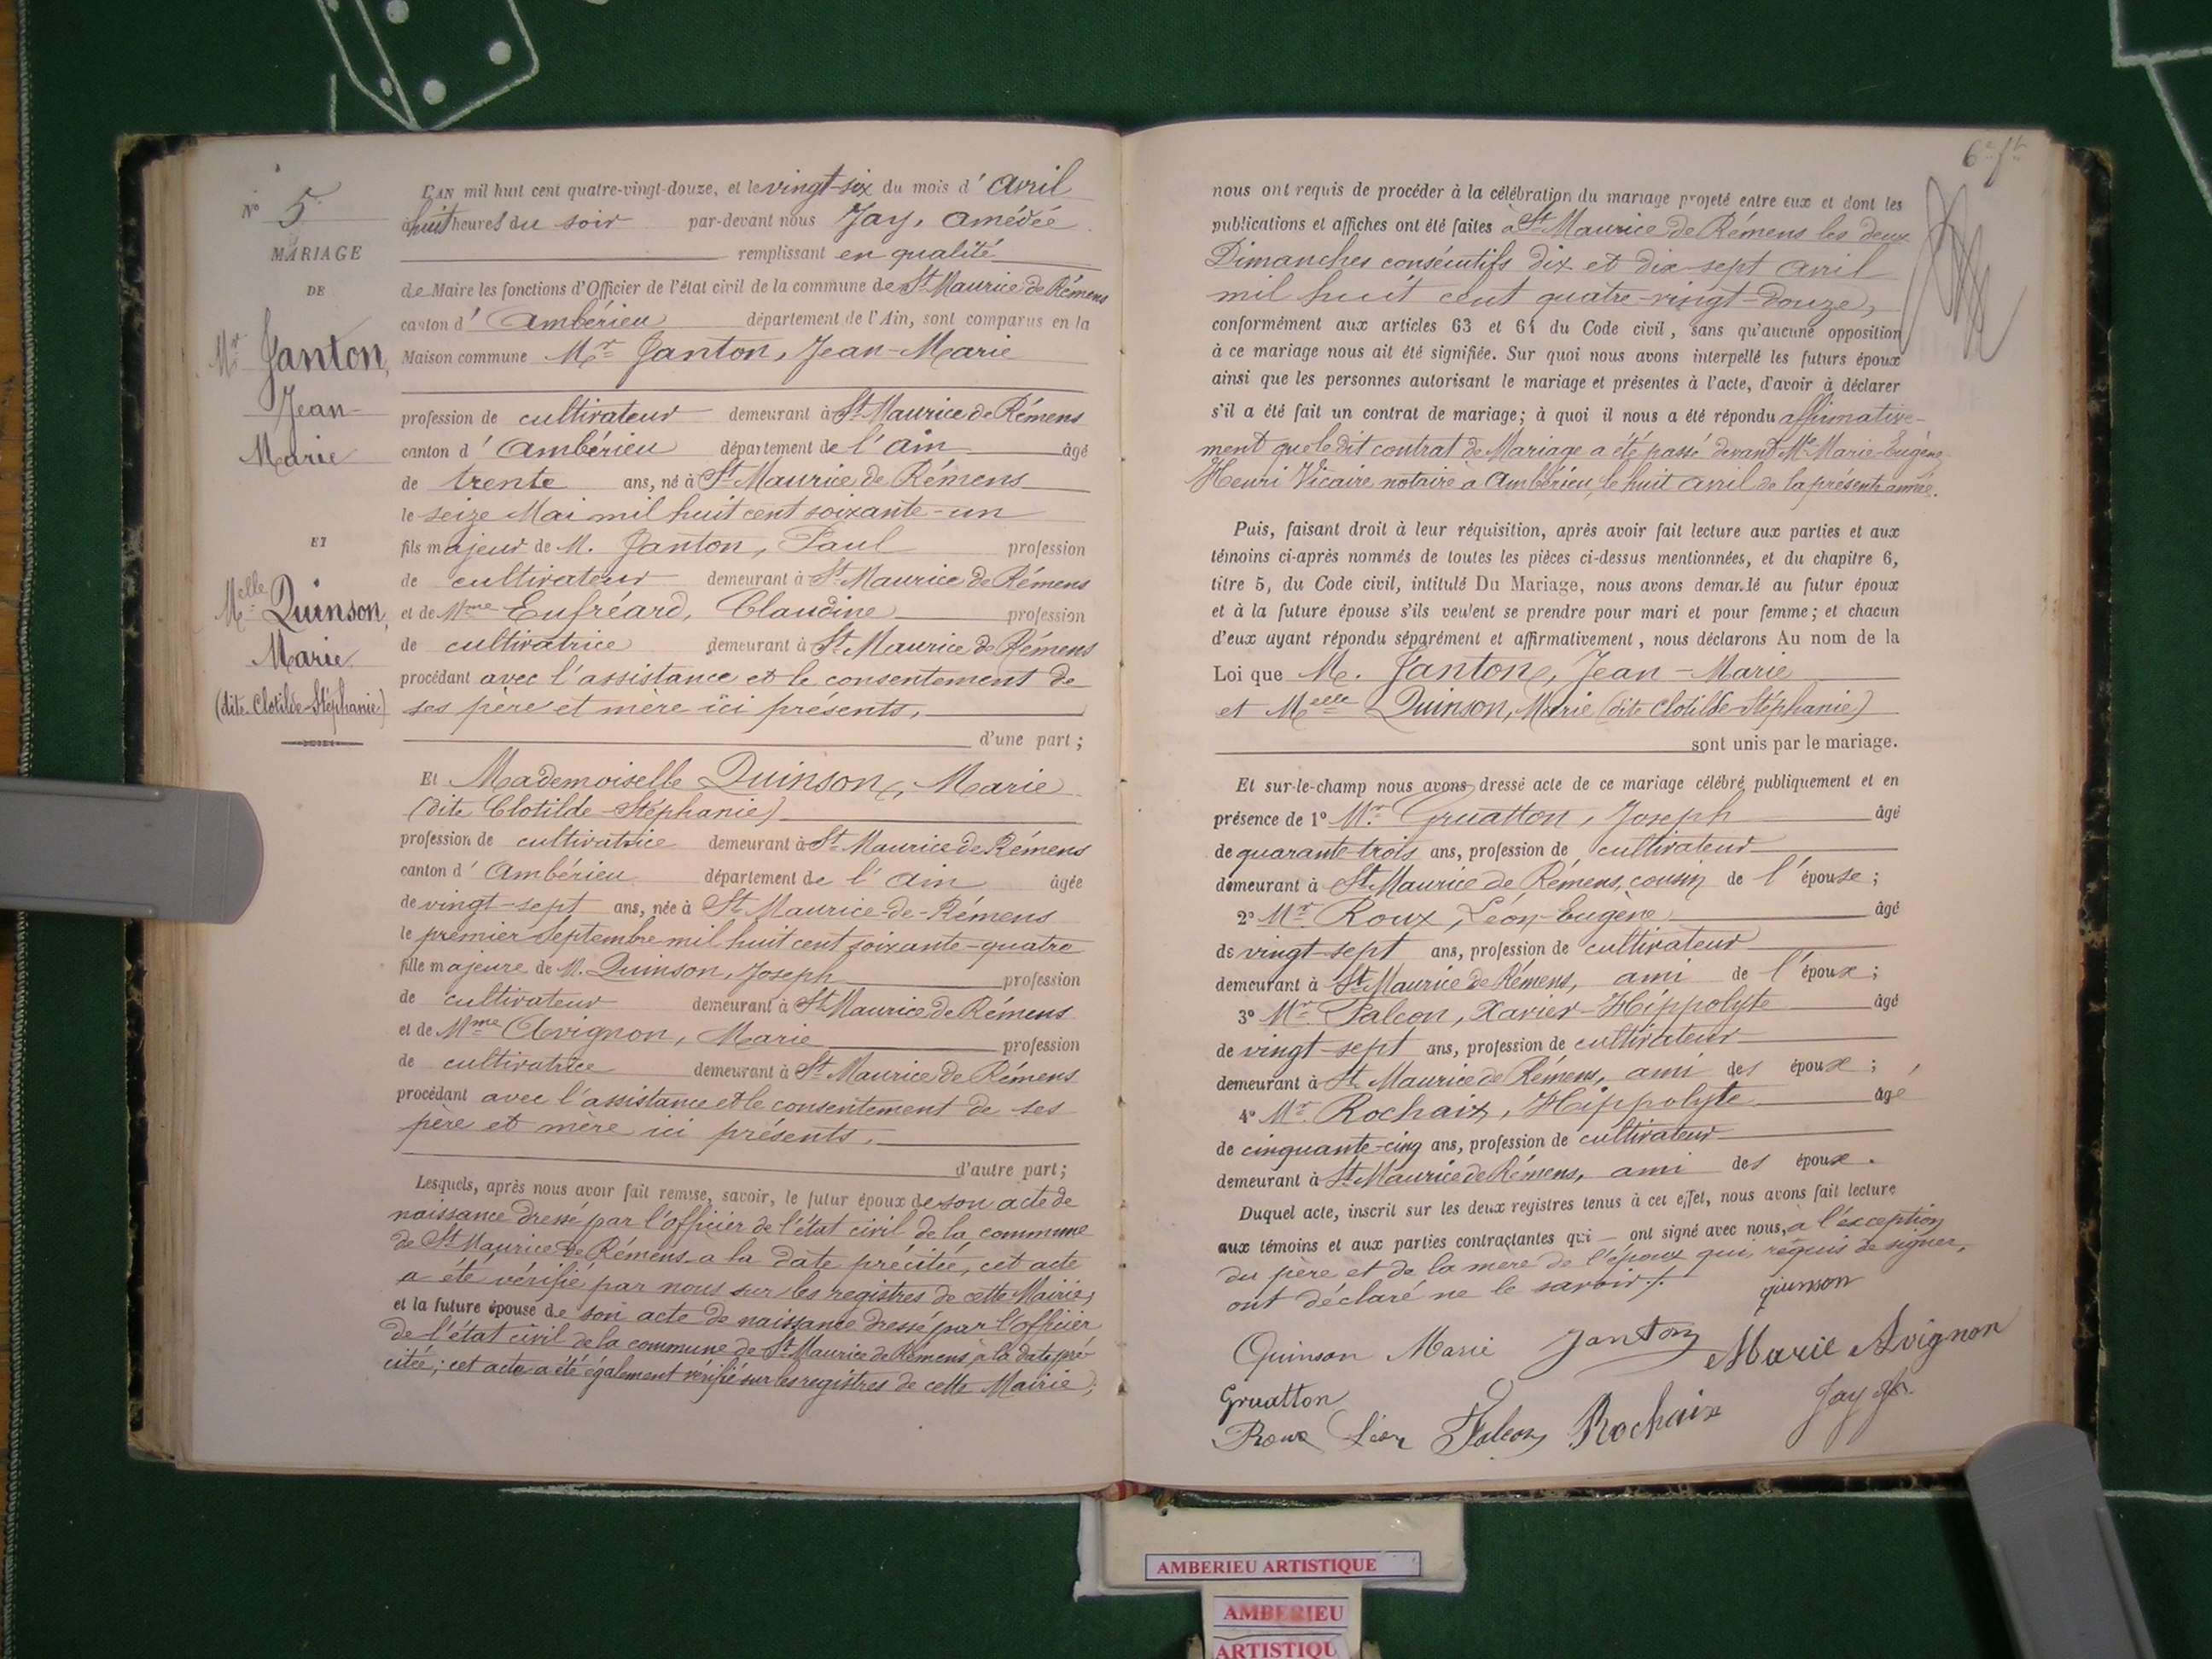 N° 5
MARIAGE
DE
Mr Janton,
Jean-
Marie
ET
Melle Quinson,
Marie
(dite Clotilde-Stéphanie)
L'AN mil huit cent quatre-vingt-douze, et le vingt-six du mois d'Avril
à huit heures du soir par-devant nous Jay, Amédée
remplissant en qualité
de Maire les fonctions d'Officier de l'état civil de la commune de St Maurice de Rémens
canton d'Ambérieu département de l'Ain, sont comparus en la
Maison commune Mr Janton, Jean-Marie
profession de cultivateur demeurant à St Maurice de Rémens
canton d'Ambérieu département de l'Ain âgé
de trente ans, né à St Maurice de Rémens
le seize Mai mil huit cent soixante-un
fils majeur de M. Janton, Paul profession
de cultivateur demeurant à St Maurice de Rémens
et de Mme Eufréard, Claudine profession
de cultivatrice demeurant à St Maurice de Rémens
procédant avec l'assistance et le consentement de
ses père et mère ici présents,
d'une part;
Et Mademoiselle Quinson, Marie
(dite Clotilde-Stéphanie)
profession de cultivatrice demeurant à St Maurice de Rémens
canton d'Ambérieu département de l'Ain âgée
de vingt-sept ans, née à St Maurice-de-Rémens
le premier Septembre mil huit cent soixante-quatre
fille majeure de M. Quinson, Joseph profession
de cultivateur demeurant à St Maurice de Rémens
et de Mme Avignon, Marie profession
de cultivatrice demeurant à St Maurice de Rémens
procédant avec l'assistance et le consentement de ses
père et mère ici présents,
d'autre part;
Lesquels, après nous avoir fait remise, savoir, le futur époux de son acte de
naissance dressé par l'officier de l'état civil de la commune
de St Maurice de Rémens a la date précitée, cet acte
a été vérifié par nous sur les registres de cette Mairie,
et la future épouse de son acte de naissance dressé par l'officier
de l'état civil de la commune de St Maurice de Rémens à la date pré-
citée; cet acte a été également vérifié sur les registres de cette Mairie;
6e ft
nous ont requis de procéder à la célébration du mariage projeté entre eux et dont les
publications et affiches ont été faites à St Maurice de Rémens les deux
Dimanches consécutifs dix et dix-sept Avril
mil huit cent quatre-vingt-douze,
conformément aux articles 63 et 64 du Code civil, sans qu'aucune opposition
à ce mariage nous ait été signifiée. Sur quoi nous avons interpellé les futurs époux
ainsi que les personnes autorisant le mariage et présentes à l'acte, d'avoir à déclarer
s'il a été fait un contrat de mariage; à quoi il nous a été répondu affirmative-
ment que le dit contrat de Mariage a été passé devant Me Marie-Eugène
Henri Vicaire notaire à Ambérieu, le huit Avril de la présente année.
Puis, faisant droit à leur réquisition, après avoir fait lecture aux parties et aux
témoins ci-après nommés de toutes les pièces ci-dessus mentionnées, et du chapitre 6,
titre 5, du Code civil, intitulé Du Mariage, nous avons demandé au futur époux
et à la future épouse s'ils veulent se prendre pour mari et pour femme; et chacun
d'eux ayant répondu séparément et affirmativement, nous déclarons Au nom de la
Loi que M. Janton, Jean-Marie
et Melle Quinson, Marie (dite Clotilde-Stéphanie)
sont unis par le mariage.
Et sur-le-champ nous avons dressé acte de ce mariage célébré publiquement et en
présence de 1° Mr Gruatton, Joseph âgé
de quarante-trois ans, profession de cultivateur
demeurant à St Maurice de Rémens, cousin de l'épouse;
2° Mr Roux, Léon-Eugène âgé
de vingt-sept ans, profession de cultivateur
demeurant à St Maurice de Rémens, ami de l'époux;
3° Mr Falcon, Xavier-Hippolyte âgé
de vingt-sept ans, profession de cultivateur
demeurant à St Maurice de Rémens, ami des époux;
4° Mr Rochaix, Hippolyte âgé
de cinquante-cinq ans, profession de cultivateur
demeurant à St Maurice de Rémens, ami des époux.
Duquel acte, inscrit sur les deux registres tenus à cet effet, nous avons fait lecture
aux témoins et aux parties contractantes qui ont signé avec nous, à l'exception
du père et de la mère de l'époux qui, requis de signer,
ont déclaré ne le savoir.
quinson
Quinson Marie Janton Marie Avignon
Gruatton
Roux Léon Falcon Rochaix Jay
AMBERIEU ARTISTIQUE
AMBERIEU
ARTISTIQU